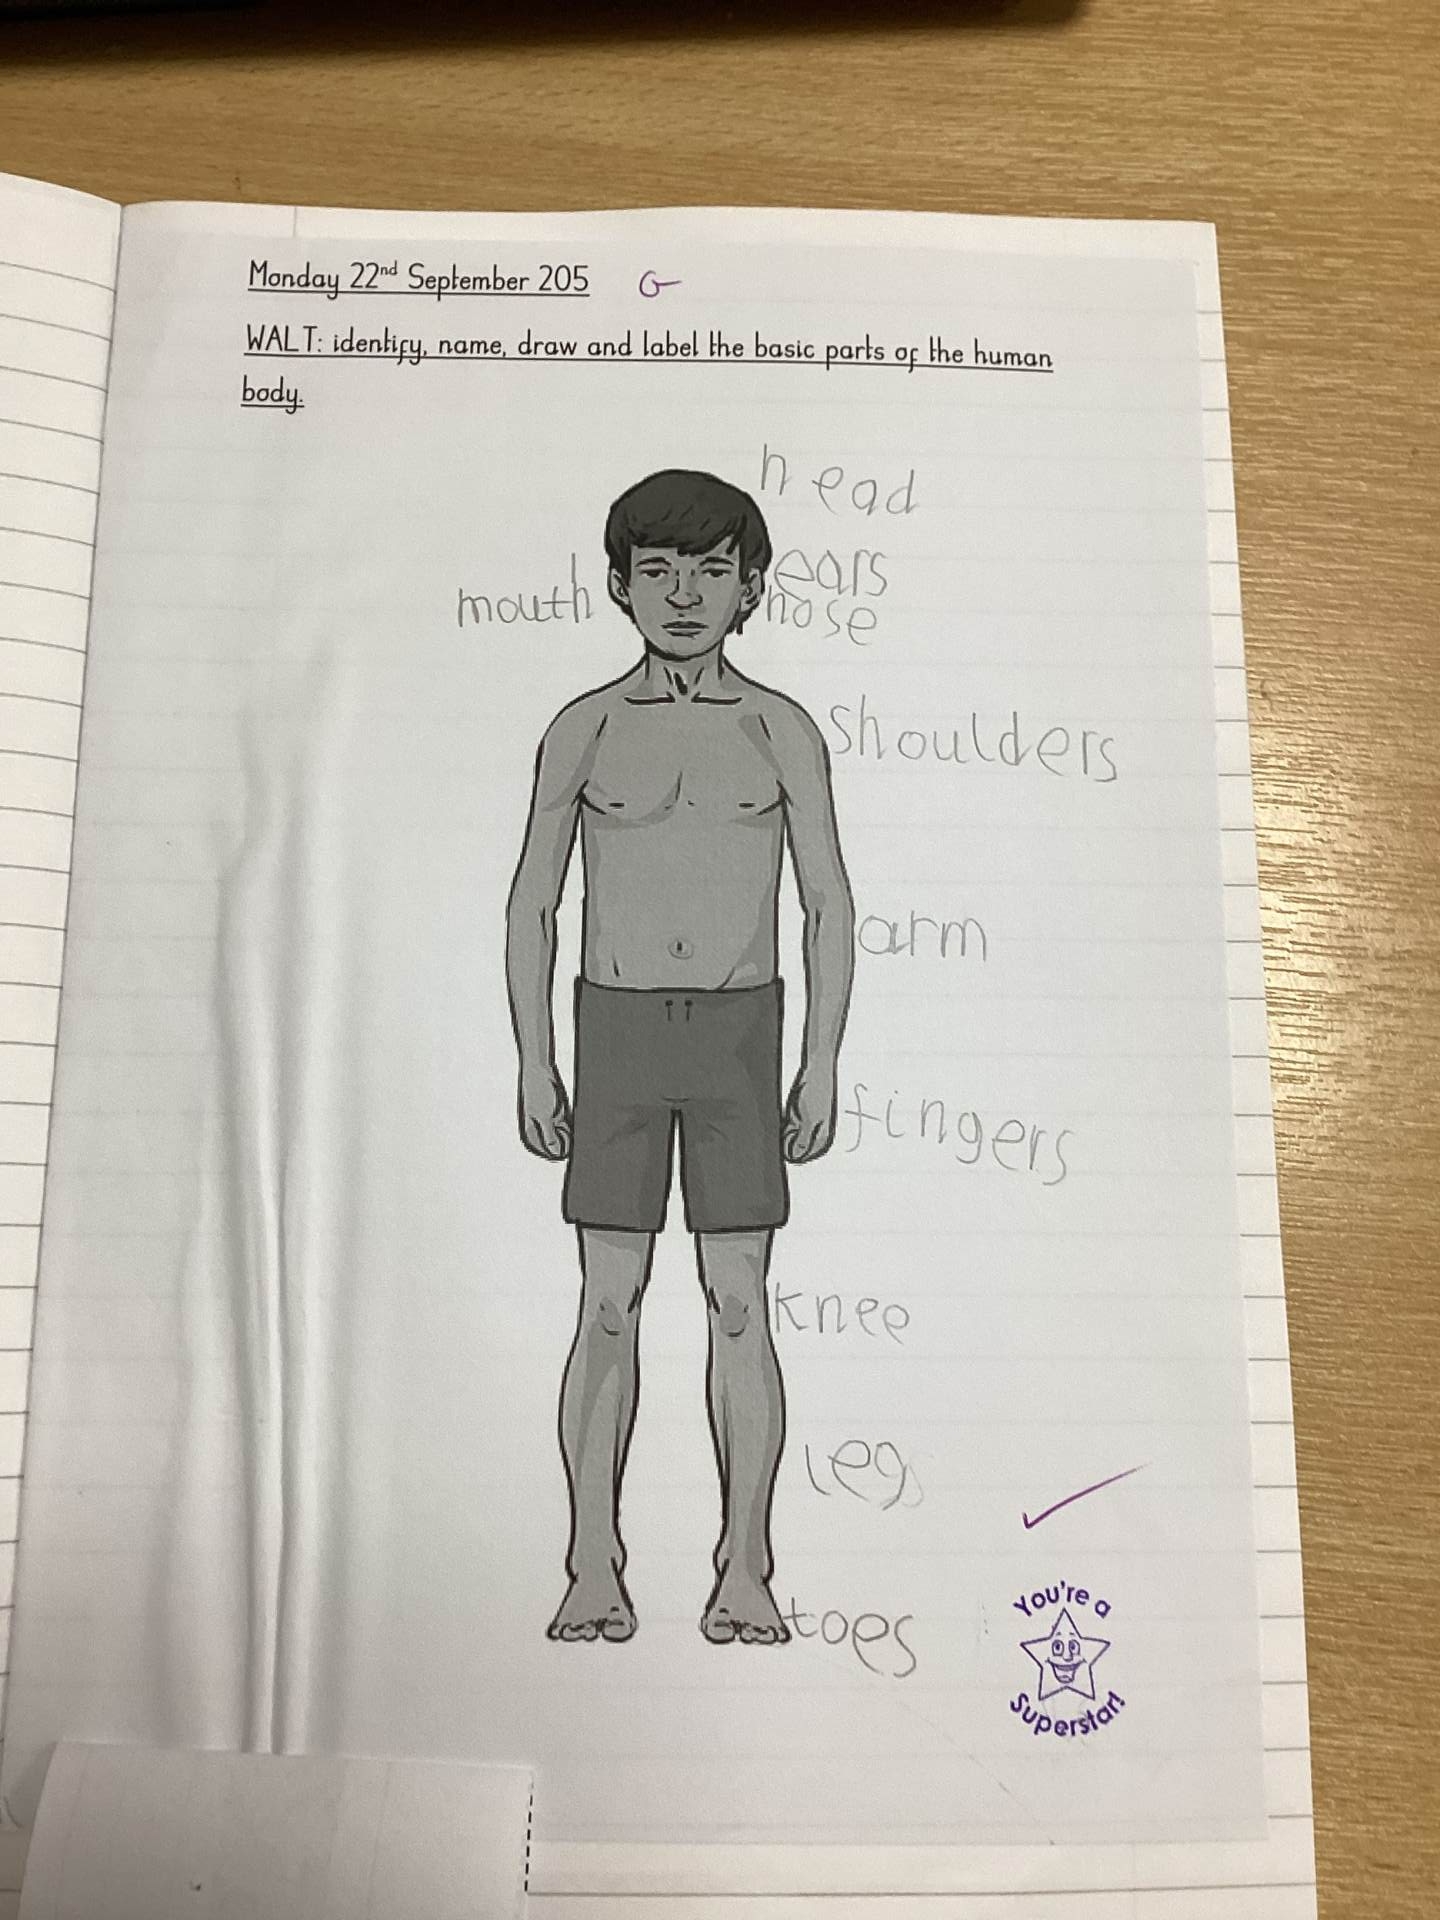 Monday 22nd September 205 G
WALT: identify, name, draw and label the basic parts of the human
body.
head
ears
mouth
nose
shoulders
arm
fingers
knee
legs
toes
You're a
Superstar!